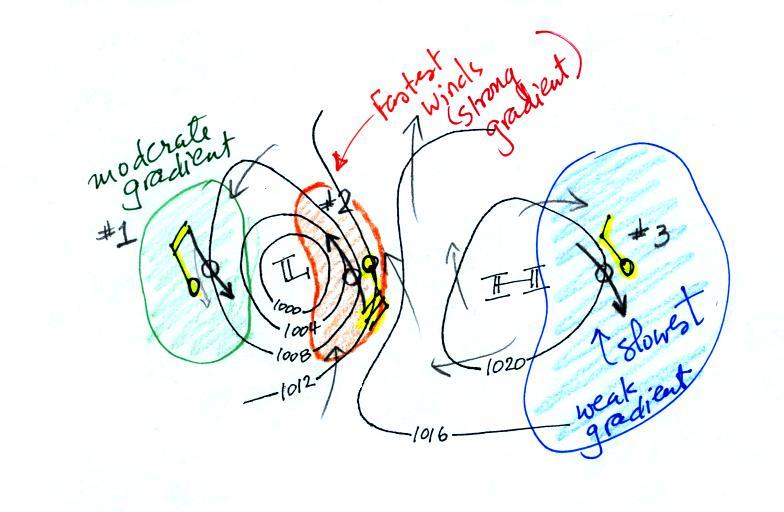 Fastest
winds
(strong
gradient)
moderate
gradient
#1
#2
#3
L
H
1000
1004
1008
1012
1020
1016
slowest
weak
gradient